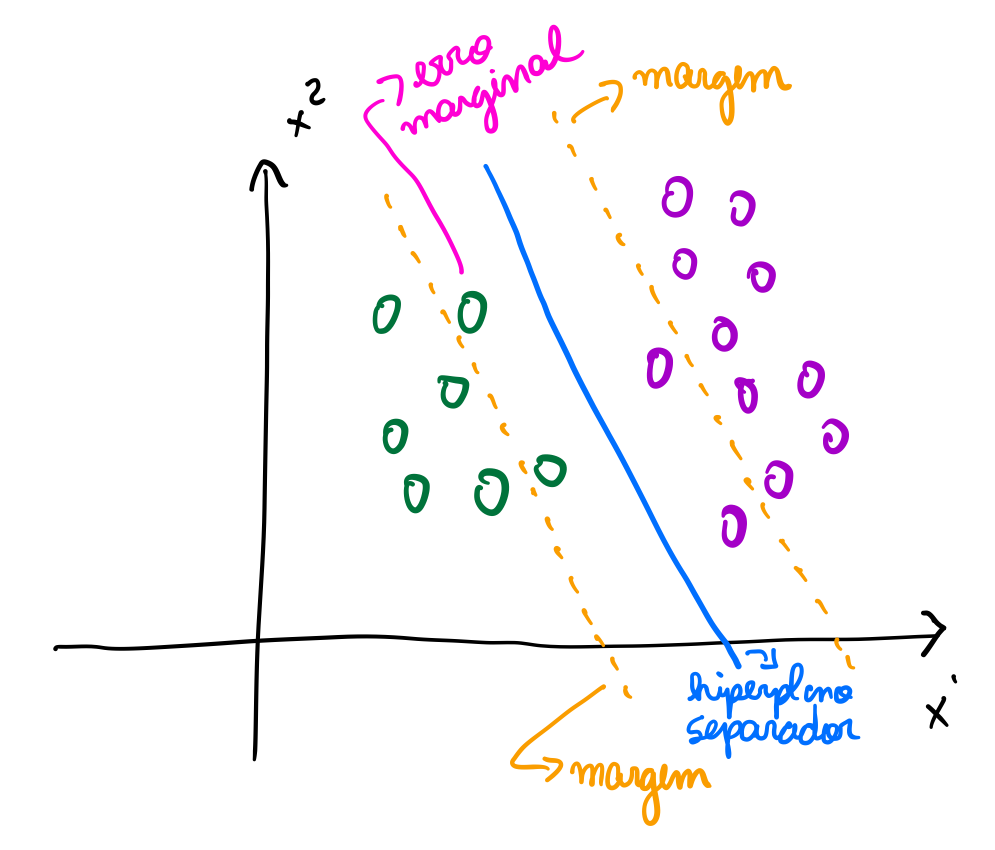 erro
marginal
margem
x²
hiperplano
separador
x'
margem